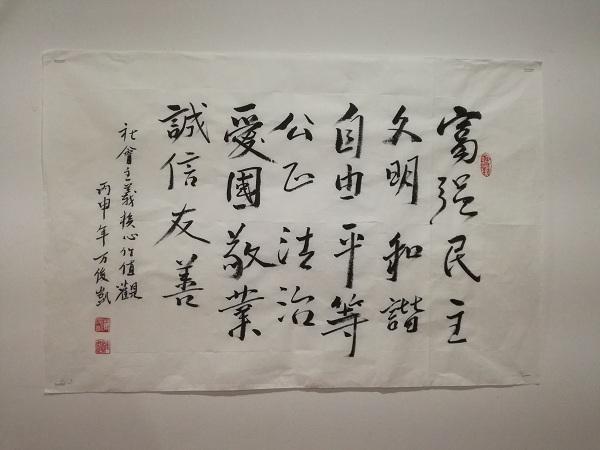 富强民主
文明和諧
自由平等
公正法治
愛國敬業
誠信友善
社會主義核心价值觀
丙申年万俊凱